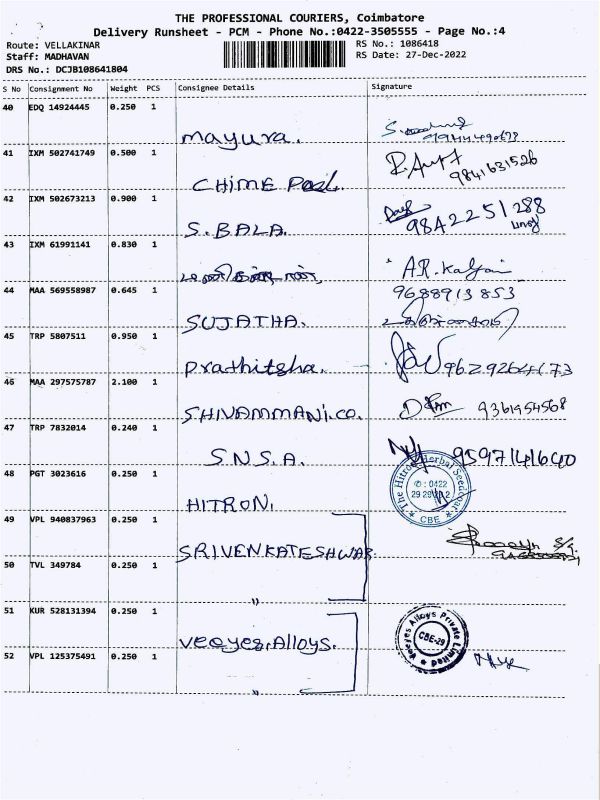 THE PROFESSIONAL COURIERS, Coimbatore
Delivery Runsheet - PCM - Phone No.:0422-3505555 - Page No.:4
Route: VELLAKINAR
RS No.: 1086418
Staff: MADHAVAN
RS Date: 27-Dec-2022
DRS No.: DCJB108641804
S No Consignment No Weight PCS Consignee Details Signature
40 EDQ 14924445 0.250 1
mayura.
41 IXM 502741749 0.500 1
9841631526
CHIME
42 IXM 502673213 0.900 1
9842251288
S. BALA.
43 IXM 61991141 0.830 1
A.R. Kalyani
44 MAA 569558987 0.645 1
9688913853
SUJATHA.
45 TRP 5807511 0.950 1
Prathitsha. 9629264173
46 MAA 297575787 2.100 1
SHIVAMMANI.CO. 9361954568
47 TRP 7832014 0.240 1
S.N.S.A. 9597141640
48 PGT 3023616 0.250 1
The Hitron Herbal Seedcoat
CBE
HITRON.
49 VPL 940837963 0.250 1
SRIVENKATESHWAR
50 TVL 349784 0.250 1
"
51 KUR 528131394 0.250 1
Veeyes Alloys Private Limited
CBE-29
Veeyes.Alloys.
52 VPL 125375491 0.250 1
"